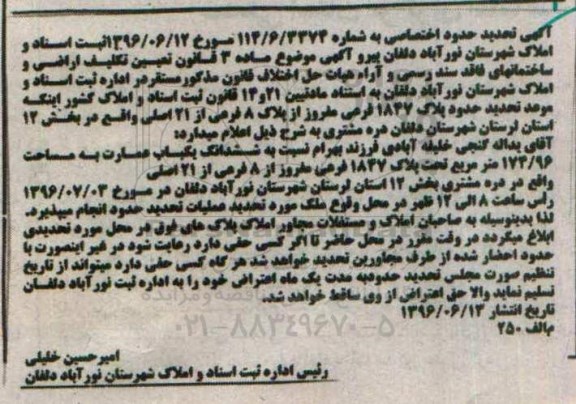 آگهی تحدید حدود اختصاصی به شماره ۱۱۴/۶/۳۳۷۴ مورخ ۱۳۹۶/۰۶/۱۲ ثبت اسناد و
املاک شهرستان نورآباد دلفان پیرو آگهی موضوع ماده ۳ قانون تعیین تکلیف اراضی و
ساختمانهای فاقد سند رسمی و آراء هیات حل اختلاف قانون مذکور مستقر در اداره ثبت اسناد و
املاک شهرستان نورآباد دلفان به استناد مادتیین ۲۱ و ۱۴ قانون ثبت اسناد و املاک کشور اینکه
موعد تحدید حدود پلاک ۱۸۴۷ فرعی مفروز از پلاک ۸ فرعی از ۲۱ اصلی واقع در بخش ۱۲
استان لرستان شهرستان دلفان دره مشتری به شرح ذیل اعلام میدارد:
آقای یداله گنجی خلیفه آبادی فرزند بهرام نسبت به ششدانگ یکباب عمارت به مساحت
۱۷۴/۹۶ متر مربع تحت پلاک ۱۸۴۷ فرعی مفروز از ۸ فرعی از ۲۱ اصلی
واقع در دره مشتری بخش ۱۲ استان لرستان شهرستان نورآباد دلفان در مورخ ۱۳۹۶/۰۷/۰۳
رأس ساعت ۸ الی ۱۲ ظهر در محل وقوع ملک مورد تحدید عملیات تحدید حدود انجام میپذیرد.
لذا بدینوسیله به صاحبان املاک و مستغلات مجاور املاک پلاک های فوق در محل مورد تحدیدی
ابلاغ میگردد در وقت مقرر در محل حاضر تا اگر کسی حقی دارد رعایت شود در غیر اینصورت با
حدود احضار شده از طرف مجاورین تحدید خواهد شد هر گاه کسی حقی دارد میتواند از تاریخ
تنظیم صورت مجلس تحدید حدود به مدت یک ماه اعتراض خود را به اداره ثبت نورآباد دلفان
تسلیم نماید والا حق اعتراض از وی ساقط خواهد شد.
تاریخ انتشار ۱۳۹۶/۰۶/۱۳
م/الف ۲۵۰
۰۲۱-۸۸۳۴۹۶۷۰-۵
امیرحسین خلیلی
رئیس اداره ثبت اسناد و املاک شهرستان نورآباد دلفان